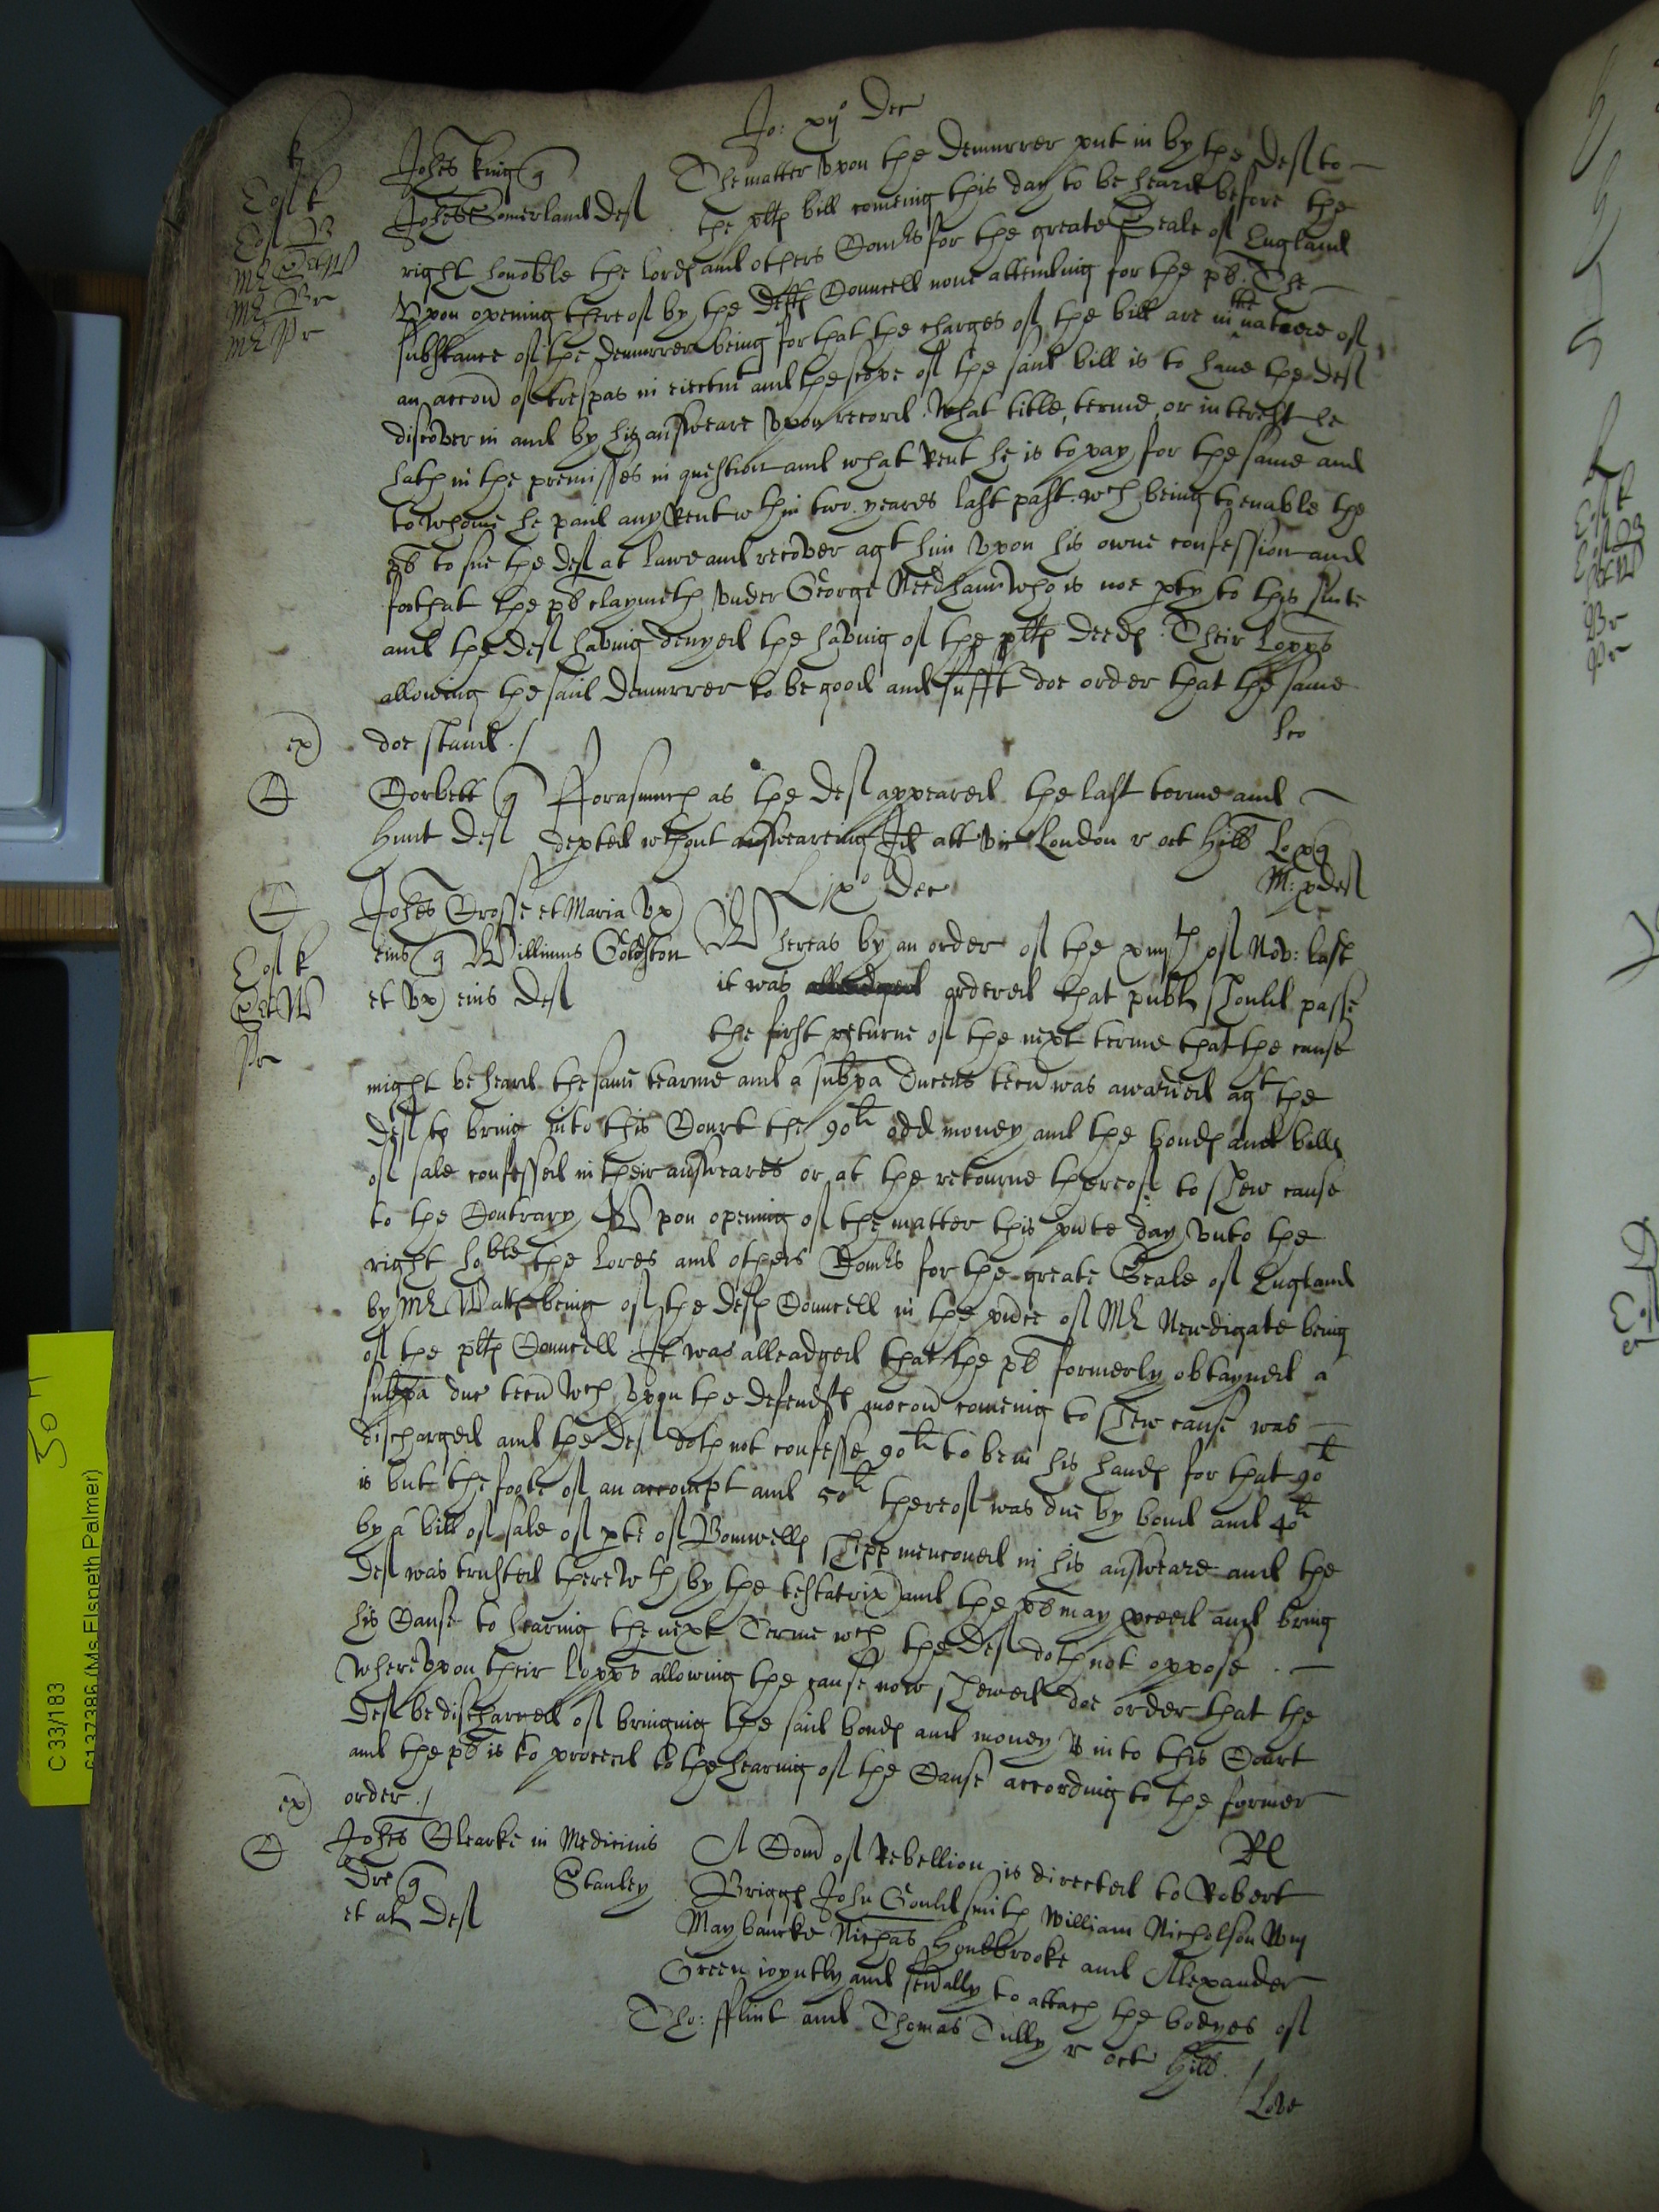 Jo: xij° Dec
Johes King q
Johes Somerland Def
The matter upon the demurrer put in by the Def to
the plts bill comeing this day to be heard before the
right honoble the lords and others Comrs for the greate Seale of England
Upon opening thereof by the Defts Councell none attending for the pl: The
substance of the demurrer being for that the charges of the bill are in the nature of
an accon of trespas in eiectmt and the scope of the said bill is to have the def
discover in and by his answeare upon record what title, terme, or interest he
hath in the premisses in question and what Rent he is to pay for the same and
to whome he paid any Rent wthin two yeares last past. wch being to enable the
pl to sue the def at lawe and recover agt him upon his owne confession and
forthat the pl claymeth under George Needham who is noe pty to this suite
and the def having denyed the having of the plts deeds. Their Lopps
allowing the said demurrer to be good and sufft doe order that the same
doe stand./
Corbett q
Hunt Def
Fforasmuch as the def appeared the last terme and
depted wthout answeareing Id att vic London r oct Hill
L ix° Dec
Johes Crosse et Maria ux
eius q Willimus Goldston
et ux eius Def
Whereas by an order of the xiiijth of Nov: last
it was ordered that publ should passe
the first returne of the next terme that the cause
might be heard the same tearme and a subpa ducens tecu was awarded agt the
def to bring into this Court the 90li odd money and the bonds and bills
of sale confessed in their answeares or at the retourne thereof to shew cause
to the Contrary Upon opening of the matter this pnte day unto the
right hoble the lords and others Comrs for the greate Seale of England
by Mr being of the defs Councell in the pnce of Mr Newdigate being
of the plts Councell It was alleadged that the pl formerly obtayned a
subpa duc tecu wch upon the defendts mocon comeing to shew cause was
discharged and the def doth not confesse 90li to be in his hands for that 90li
is but the foote of an accompt and 50li thereof was due by bond and 40li
by a bill of sale of pte of Bonwells shipp mencioned in his answeare and the
def was trusted therewth by the testatrix and the pl may pceed and bring
his Cause to hearing the next Terme wch the def doth not oppose.
Whereupon their lopps allowing the cause now shewed doe order that the
def be discharged of bringing the said bonds and money into this Court
and the pl is to proceed to the hearing of the Cause according to the former
order./
Johes Clearke in Medicinis
Dre q Stanley
et al Def
A Com of Rebellion is directed to Robert
Briggs John Gouldsmith William Nicholson Wm
Maybancke Nichas Houlbrooke and Alexander
Green ioyntly and sevally to attach the bodyes of
Tho: fflint and Thomas Tully r oct Hill./
Love
C 33/183
(Ms Elspeth Palmer)